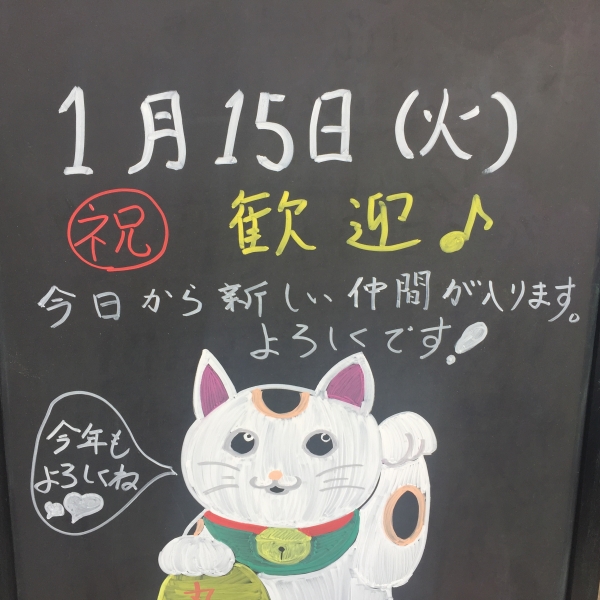 1月15日(火)
祝 歓迎♪
今日から新しい仲間が入ります。
よろしくです!
今年も
よろしくね